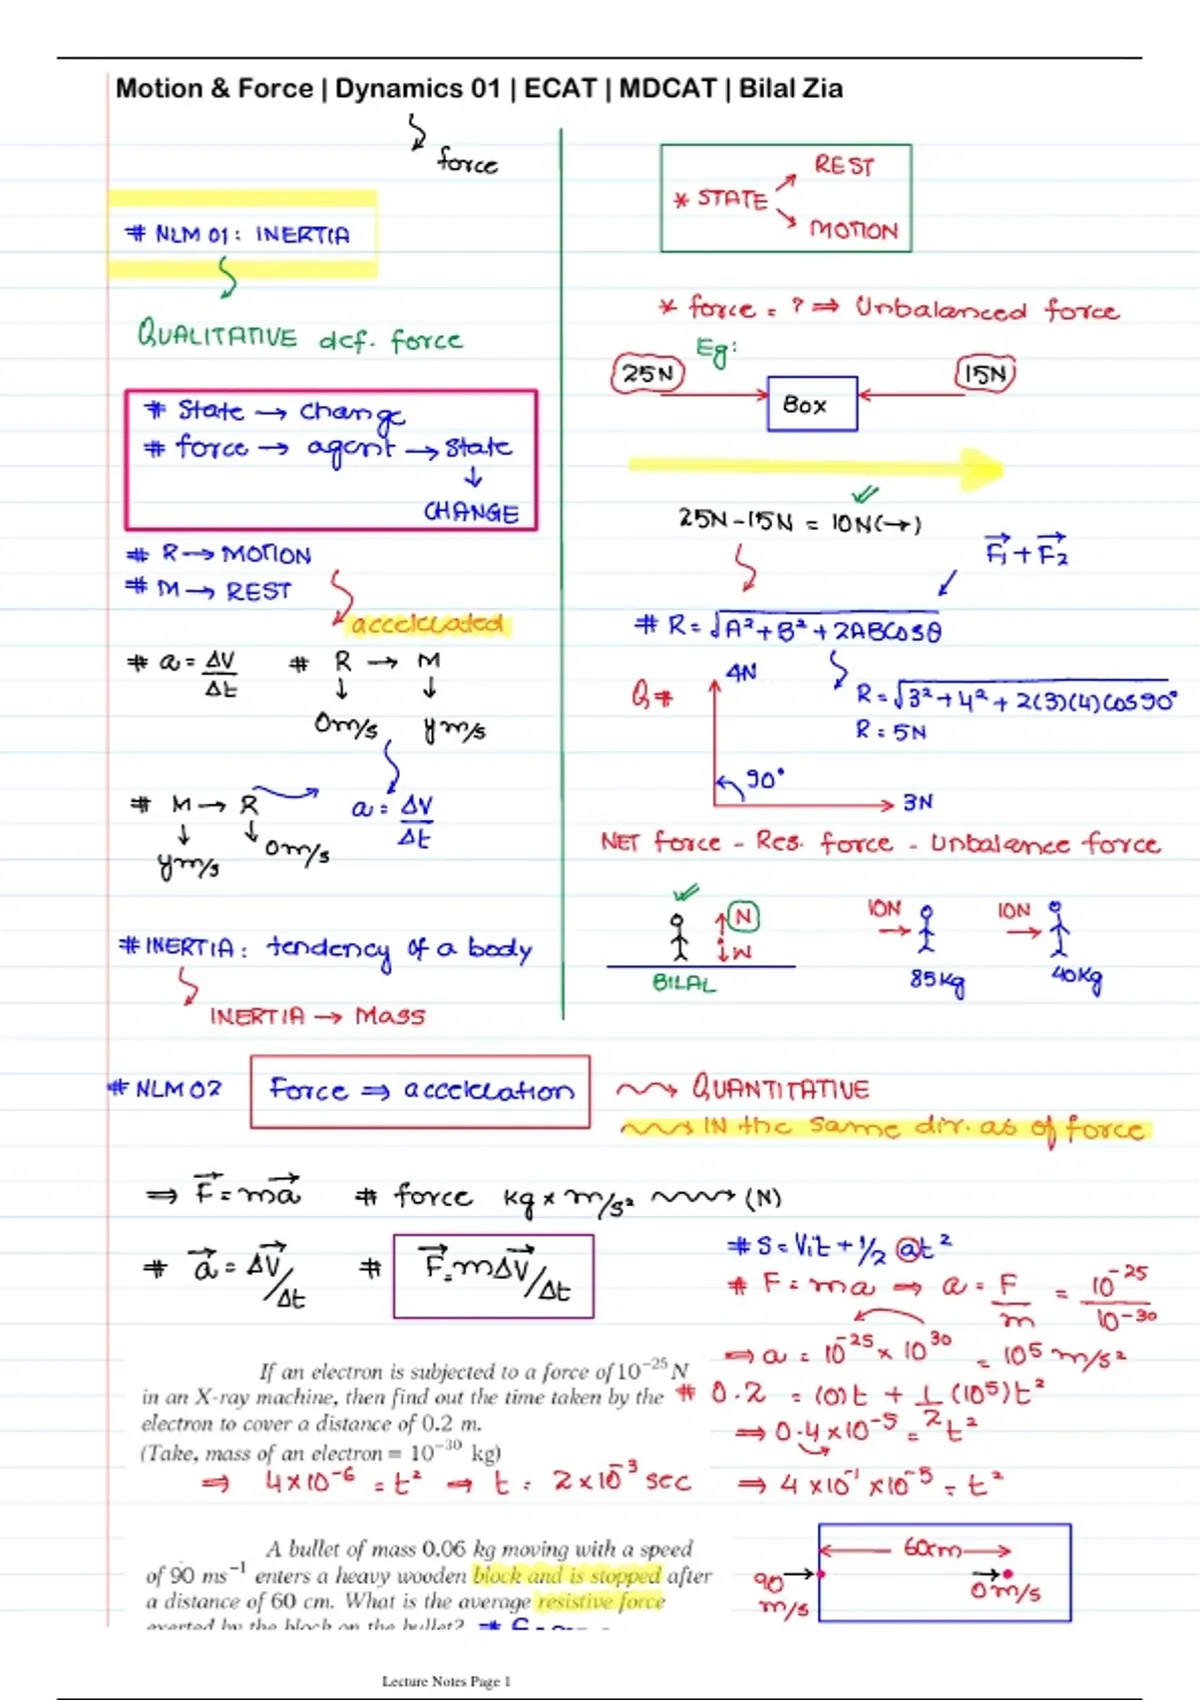 Motion & Force | Dynamics 01 | ECAT | MDCAT | Bilal Zia
force
# NLM 01: INERTIA
QUALITATIVE def. force
# State → change
# force → agent → state
↓
CHANGE
# R → MOTION
# M → REST
accelerated
# a = ΔV/Δt # R → M
↓ ↓
0m/s ym/s
# M → R a = ΔV/Δt
↓ ↓
ym/s 0m/s
# INERTIA: tendency of a body
INERTIA → Mass
* STATE
REST
MOTION
* force = ? ⇒ Unbalanced force
Eg:
25N Box 15N
25N - 15N = 10N(→)
F₁ + F₂
# R = √A² + B² + 2ABCosθ
Q# 4N
R = √3² + 4² + 2(3)(4)Cos90°
R = 5N
90°
3N
NET force - Res. force - Unbalance force
N
W
BILAL
10N 10N
85Kg 40Kg
# NLM 02 Force ⇒ acceleration QUANTITATIVE
IN the same dir. as of force
⇒ F = ma # force kg × m/s² (N)
# a = ΔV/Δt # F = mΔV/Δt
# S = Vit + 1/2 at²
# F = ma ⇒ a = F/m = 10⁻²⁵/10⁻³⁰
⇒ a = 10⁻²⁵ × 10³⁰ = 10⁵ m/s²
If an electron is subjected to a force of 10⁻²⁵ N
in an X-ray machine, then find out the time taken by the
electron to cover a distance of 0.2 m.
(Take, mass of an electron = 10⁻³⁰ kg)
# 0.2 = (0)t + 1/2 (10⁵)t²
⇒ 0.4×10⁻⁵ = t²
⇒ 4×10⁻¹×10⁻⁵ = t²
⇒ 4×10⁻⁶ = t² → t = 2×10⁻³ sec
A bullet of mass 0.06 kg moving with a speed
of 90 ms⁻¹ enters a heavy wooden block and is stopped after
a distance of 60 cm. What is the average resistive force
exerted by the block on the bullet?
60cm
90 m/s
0m/s
Lecture Notes Page 1